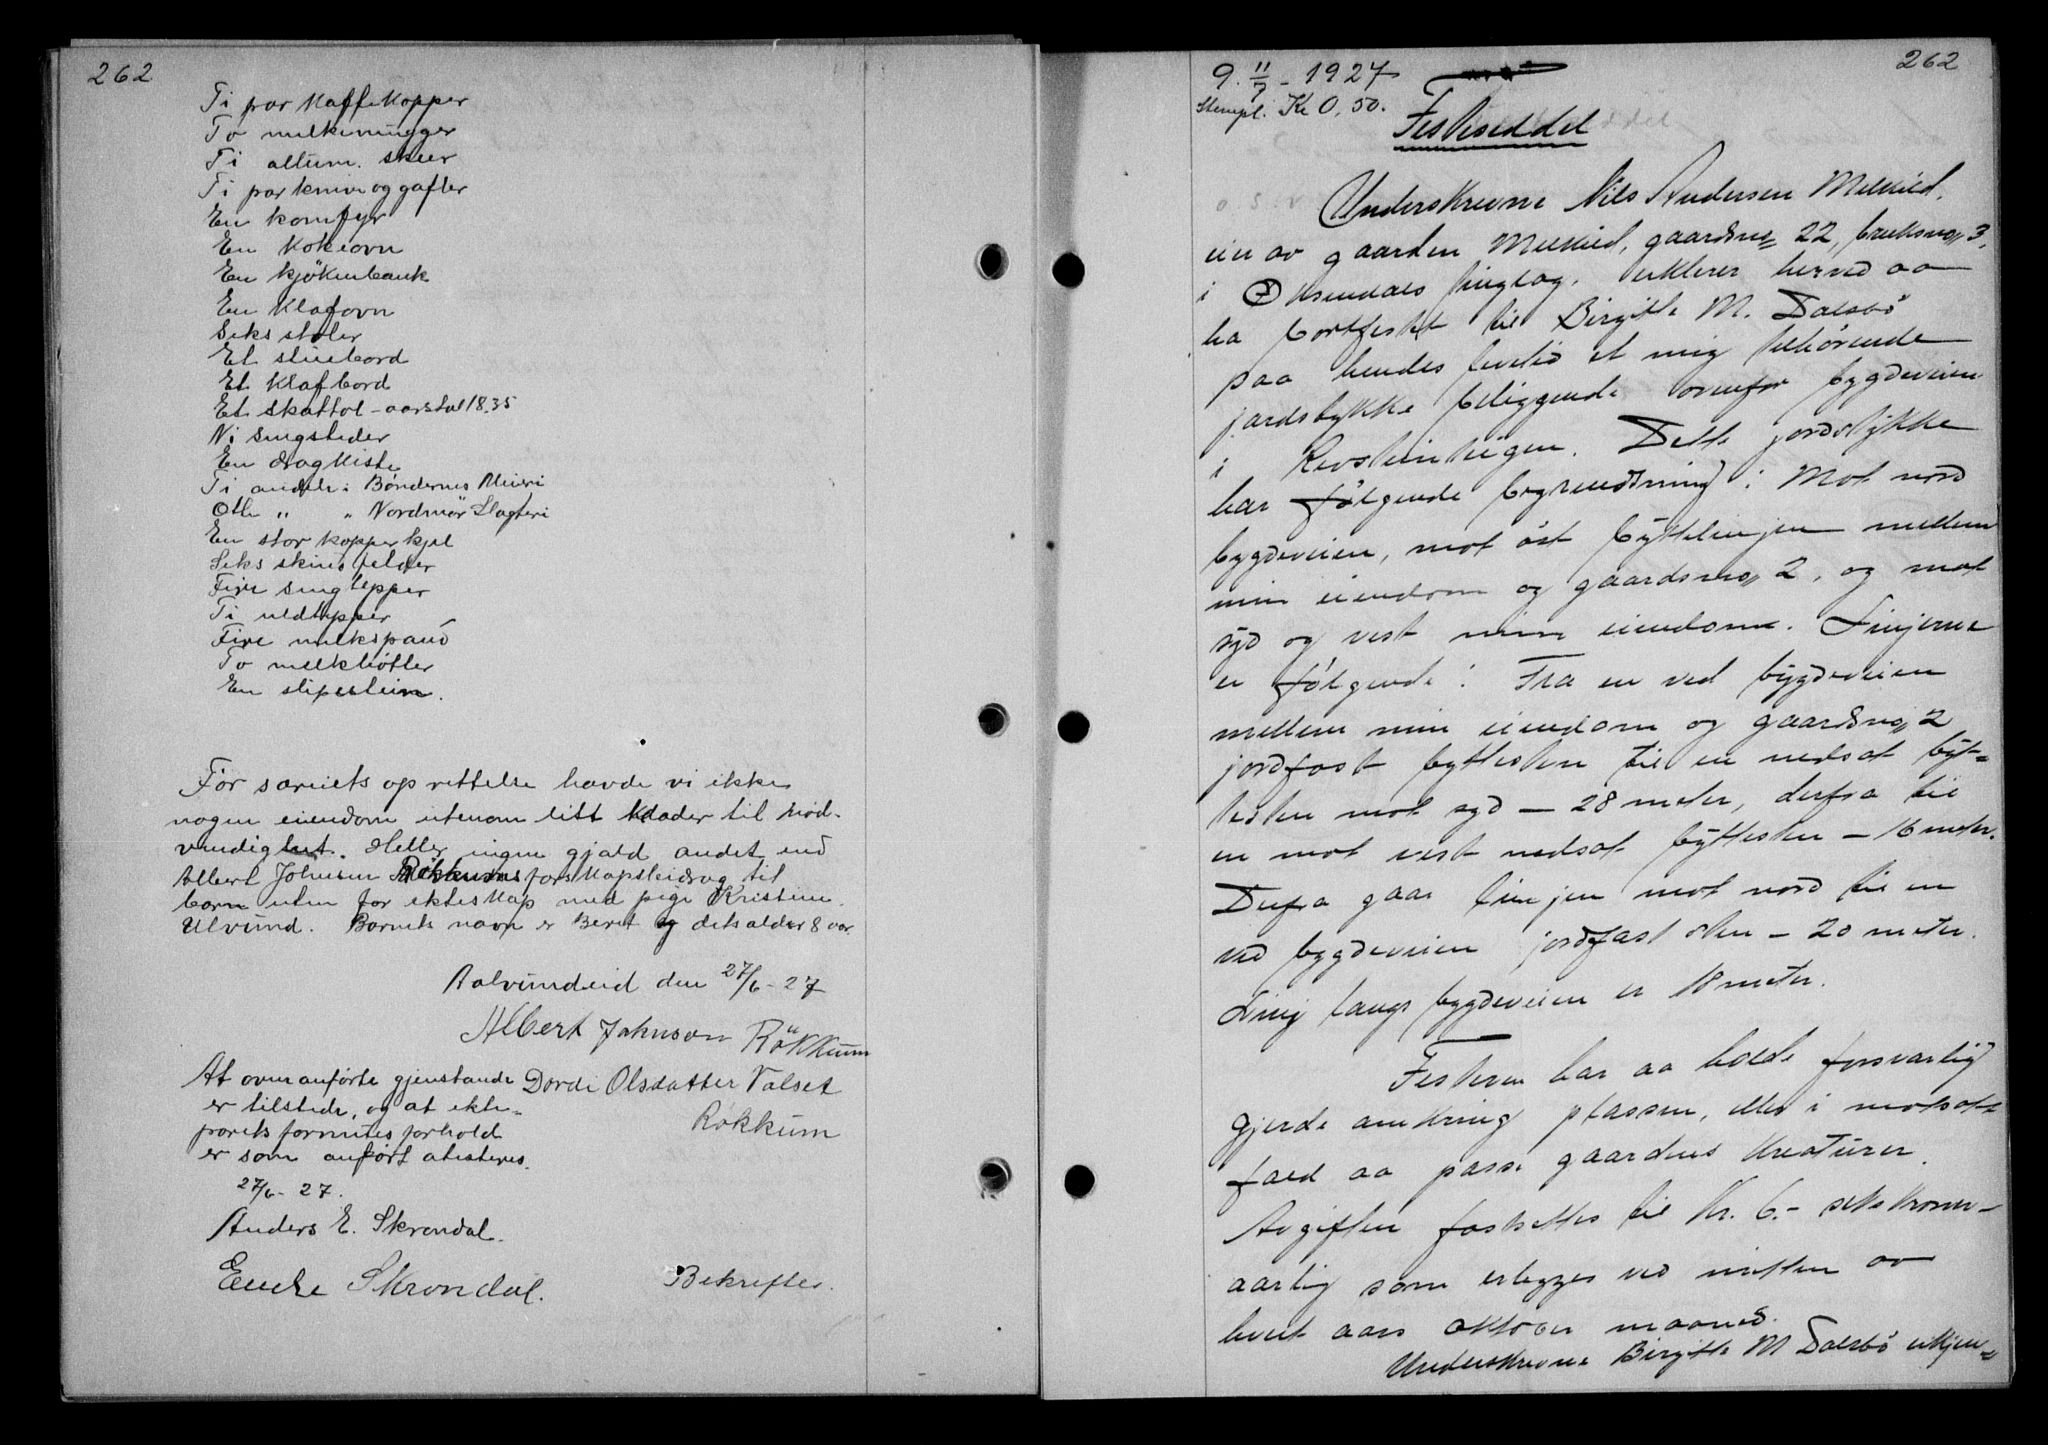 262
Ti par Kaffekopper
To melkemugger
Ti allum. skeer
Ti par knive og gafler
En komfyr
En Kokeovn
En kjökenbenk
En Klafovn
Seks stoler
Et stuebord
Et Klafbord
Et skattol - aarstal 1835
Ni sengsteder
En dragkiste
Ti andele i Bøndernes Mieri
Otte " " Nordmör Slagteri
En stor kopperkjel
Seks skinsfelder
Fire sengtepper
Ti uldtepper
Fire melkspand
To melkbötter
En slipestein.
För særeiets oprettelse havde vi ikke
nogen eiendom utenom litt klæder til nöd-
vendighet. Heller ingen gjæld andet end
Albert Johnsen Rökkums farskapsbidrag til
barn uten for ekteskap med pige Kristine
Ulvund. Barnets navn er Beret og dets alder 8 aar.
Aalvundeid den 27/6-27
Albert Johnson Rökkum
Dordi Olsdatter Valset
Rökkum
At ovenanförte gjenstande
er tilstede, og at ekte-
parets formues forhold
er som anfört atesteres.
27/6-27.
Anders E. Skrondal.
Skrondal.
Bekreftes.
262
9. 11/7 - 1927
Stempl. Kr 0,50.
Festeseddel
Underskrevne Nils Andersen Melkild,
eier av gaarden Melkild, gaardsno 22, bruksno 3,
i Øksendals tinglag, erklerer herved aa
ha bortfestet til Birgitte M. Dalsbö
paa hendes levetid et mig tilhörende
jordstykke beliggende ovenfor bygdeveien
i. Dette jordstykke
har følgende begrendsning: Mot nord
bygdeveien, mot öst byttelinjen mellem
min eiendom og gaardsno 2, og mot
syd og vest min eiendom. Linjerne
er følgende: Fra en ved bygdeveien
mellem min eiendom og gaardsno 2
jordfast byttesten til en nedsat byt=
testen mot syd - 28 meter, derfra til
en mot vest nedsat byttesten - 16 meter.
Derfra gaar linjen mot nord til en
ved bygdeveien jordfast sten - 20 meter.
Linj langs bygdeveien er 18 meter.
Festeren har aa holde forsvarlig
gjerde omkring plassen, eller i motsat
fald aa passe gaardens kreaturer.
Avgiften fastsettes til Kr. 6.- seks kroner -
aarlig som erlegges ved midten av
hvert aars oktober maaned.
Underskrevne Birgitte M Dalsbö erkjen=